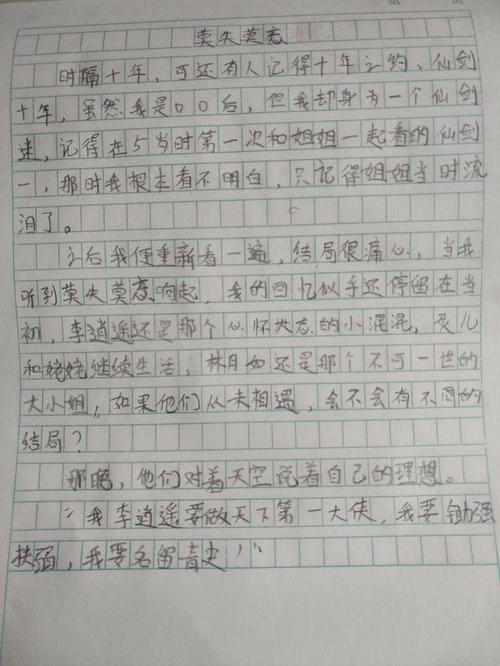 莫失莫忘
时隔十年，可还有人记得十年之约，仙剑
十年，虽然我是00后，但我却身为一个仙剑
迷，记得在5当时第一次和姐姐一起看的仙剑
一，那时我根本看不明白，只记得姐姐当时流
泪了。
之后我便重新看一遍，结局很痛心，当我
听到莫失莫忘响起，我的回忆似乎还停留在当
初，李逍遥还是那个心怀大志的小混混，灵儿
和姥姥继续生活，林月如还是那个不可一世的
大小姐，如果他们从未相遇，会不会有不同的
结局？
那晚，他们对着天空说着自己的理想。
"我李逍遥要做天下第一大侠，我要锄强
扶弱，我要名留青史！"